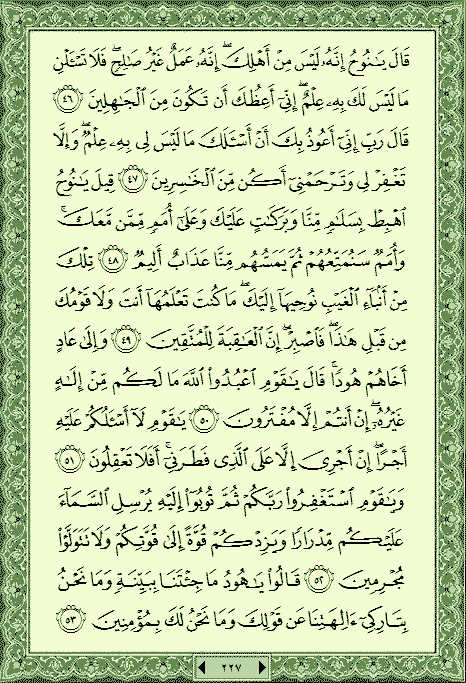 قَالَ يَـٰنُوحُ إِنَّهُۥ لَيْسَ مِنْ أَهْلِكَ ۖ إِنَّهُۥ عَمَلٌ غَيْرُ صَـٰلِحٍ ۖ فَلَا تَسْـَٔلْنِ
مَا لَيْسَ لَكَ بِهِۦ عِلْمٌ ۖ إِنِّىٓ أَعِظُكَ أَن تَكُونَ مِنَ ٱلْجَـٰهِلِينَ ٤٦
قَالَ رَبِّ إِنِّىٓ أَعُوذُ بِكَ أَنْ أَسْـَٔلَكَ مَا لَيْسَ لِى بِهِۦ عِلْمٌ ۖ وَإِلَّا
تَغْفِرْ لِى وَتَرْحَمْنِىٓ أَكُن مِّنَ ٱلْخَـٰسِرِينَ ٤٧ قِيلَ يَـٰنُوحُ
ٱهْبِطْ بِسَلَـٰمٍ مِّنَّا وَبَرَكَـٰتٍ عَلَيْكَ وَعَلَىٰٓ أُمَمٍ مِّمَّن مَّعَكَ ۚ
وَأُمَمٌ سَنُمَتِّعُهُمْ ثُمَّ يَمَسُّهُم مِّنَّا عَذَابٌ أَلِيمٌ ٤٨ تِلْكَ
مِنْ أَنۢبَآءِ ٱلْغَيْبِ نُوحِيهَآ إِلَيْكَ ۖ مَا كُنتَ تَعْلَمُهَآ أَنتَ وَلَا قَوْمُكَ
مِن قَبْلِ هَـٰذَا ۖ فَٱصْبِرْ ۖ إِنَّ ٱلْعَـٰقِبَةَ لِلْمُتَّقِينَ ٤٩ وَإِلَىٰ عَادٍ
أَخَاهُمْ هُودًا ۚ قَالَ يَـٰقَوْمِ ٱعْبُدُوا۟ ٱللَّهَ مَا لَكُم مِّنْ إِلَـٰهٍ
غَيْرُهُۥٓ ۖ إِنْ أَنتُمْ إِلَّا مُفْتَرُونَ ٥٠ يَـٰقَوْمِ لَآ أَسْـَٔلُكُمْ عَلَيْهِ
أَجْرًا ۖ إِنْ أَجْرِىَ إِلَّا عَلَى ٱلَّذِى فَطَرَنِىٓ ۚ أَفَلَا تَعْقِلُونَ ٥١
وَيَـٰقَوْمِ ٱسْتَغْفِرُوا۟ رَبَّكُمْ ثُمَّ تُوبُوٓا۟ إِلَيْهِ يُرْسِلِ ٱلسَّمَآءَ
عَلَيْكُم مِّدْرَارًا وَيَزِدْكُمْ قُوَّةً إِلَىٰ قُوَّتِكُمْ وَلَا تَتَوَلَّوْا۟
مُجْرِمِينَ ٥٢ قَالُوا۟ يَـٰهُودُ مَا جِئْتَنَا بِبَيِّنَةٍ وَمَا نَحْنُ
بِتَارِكِىٓ ءَالِهَتِنَا عَن قَوْلِكَ وَمَا نَحْنُ لَكَ بِمُؤْمِنِينَ ٥٣
٢٢٧